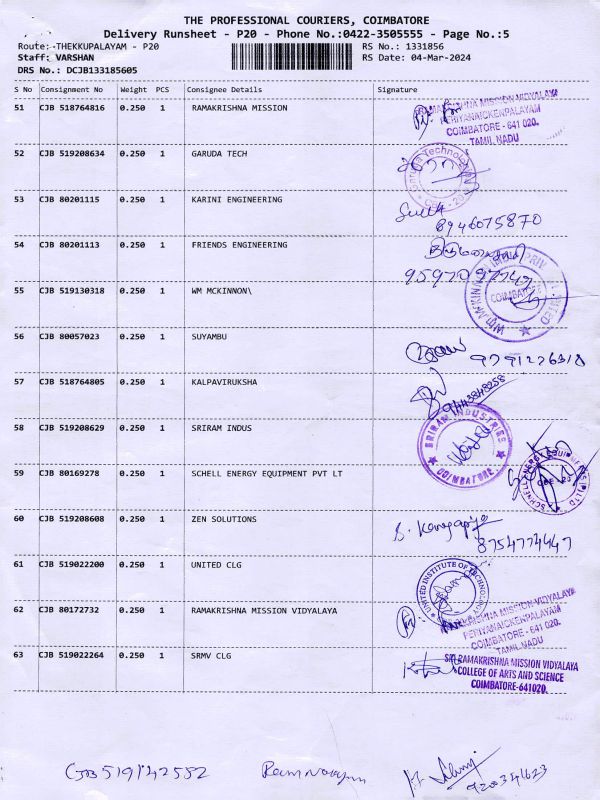 THE PROFESSIONAL COURIERS, COIMBATORE
Delivery Runsheet - P20 - Phone No.:0422-3505555 - Page No.:5
Route: -THEKKUPALAYAM - P20
RS No.: 1331856
Staff: VARSHAN
RS Date: 04-Mar-2024
DRS No.: DCJB133185605
S No Consignment No Weight PCS Consignee Details Signature
51 CJB 518764816 0.250 1 RAMAKRISHNA MISSION
RAMAKRISHNA MISSION VIDYALAYA
PERIYANAICKENPALAYAM
COIMBATORE - 641 020.
TAMIL NADU
52 CJB 519208634 0.250 1 GARUDA TECH
53 CJB 80201115 0.250 1 KARINI ENGINEERING
8946075870
54 CJB 80201113 0.250 1 FRIENDS ENGINEERING
9597097749
55 CJB 519130318 0.250 1 WM MCKINNON\
COIMBATORE
56 CJB 80057023 0.250 1 SUYAMBU
9791276318
57 CJB 518764805 0.250 1 KALPAVIRUKSHA
9443848258
58 CJB 519208629 0.250 1 SRIRAM INDUS
SRIRAM INDUSTRIES
COIMBATORE
59 CJB 80169278 0.250 1 SCHELL ENERGY EQUIPMENT PVT LT
60 CJB 519208608 0.250 1 ZEN SOLUTIONS
8754774447
61 CJB 519022200 0.250 1 UNITED CLG
UNITED INSTITUTE OF TECHNOLOGY
62 CJB 80172732 0.250 1 RAMAKRISHNA MISSION VIDYALAYA
RAMAKRISHNA MISSION VIDYALAYA
PERIYANAICKENPALAYAM
COIMBATORE - 641 020.
TAMIL NADU
63 CJB 519022264 0.250 1 SRMV CLG
SRI RAMAKRISHNA MISSION VIDYALAYA
COLLEGE OF ARTS AND SCIENCE
COIMBATORE-641020.
CJB 519142552
9200341623